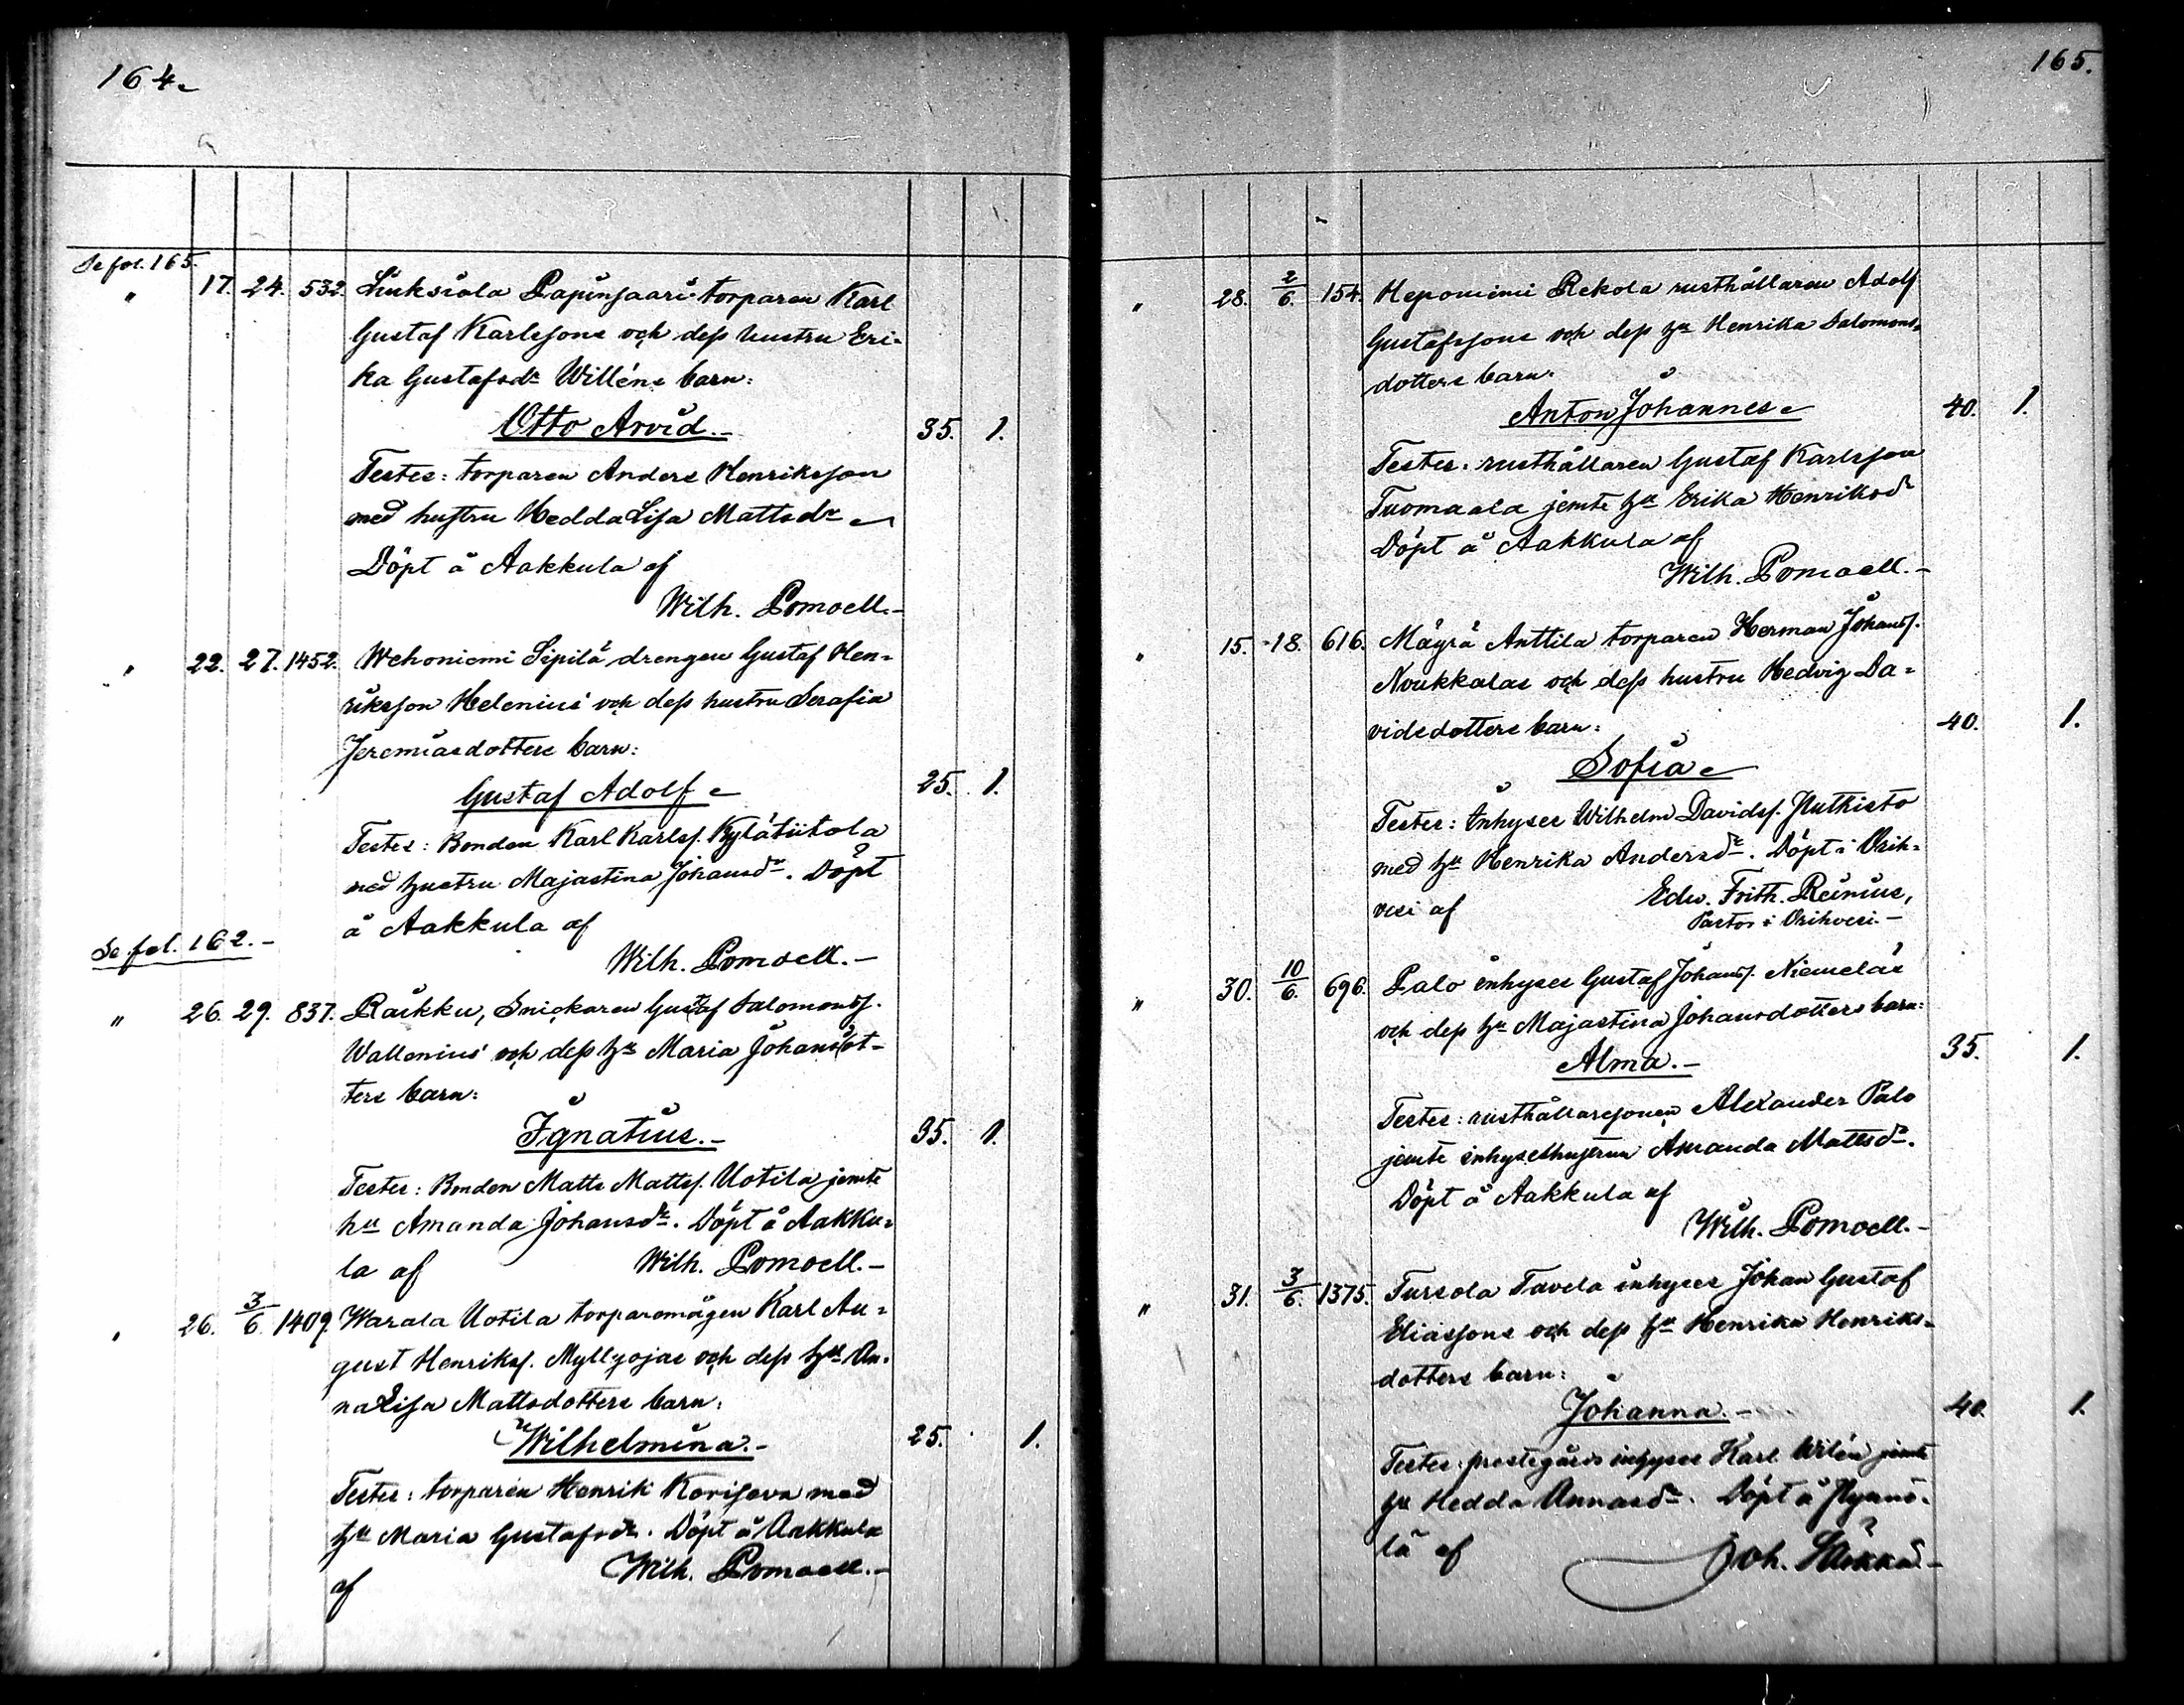 164.
Se fol. 165.
" 17. 24. 532. Liuksiala Papinsaari torparen Karl
Gustaf Karlssons och dess hustru Eri-
ka Gustafsdr Willéns barn:
Otto Arvid.- 35. 1.
Testes: torparen Anders Henriksson
med hustru Hedda Lisa Mattsdr
Döpt å Aakkula af
Wilh. Pomoell.-
" 22. 27. 1452. Wehoniemi Sipilä drengen Gustaf Hen-
riksson Helenius' och dess hustru Serafia
Jeremiasdotters barn:
Gustaf Adolf 25. 1.
Testes: Bonden Karl Karlss. Kylätiitola
med hustru Majastina Johansdr. Döpt
å Aakkula af
Wilh. Pomoell.-
Se fol. 162.-
" 26. 29. 837. Raikku, Snickaren Gustaf Salomonss.
Wallenius' och dess hu Maria Johansdot-
ters barn:
Ignatius.- 35. 1.
Testes: Bonden Matts Mattss. Uotila jemte
hu Amanda Johansdr. Döpt å Aakku-
la af Wilh. Pomoell.-
" 26. 3/6. 1409. Warala Uotila torparemågen Karl Au-
gust Henrikss. Myllyojas och dess hu An-
na Lisa Mattsdotters barn:
Wilhelmina.- 25. 1.
Testes: torparen Henrik Koriseva med
hu Maria Gustafsdr. Döpt å Aakkula
af Wilh. Pomoell.-
165.
" 28. 2/6. 154. Heponiemi Rekola rusthållaren Adolf
Gustafssons och dess hu Henrika Salomons-
dotters barn:
Anton Johannes 40. 1.
Testes: rusthållaren Gustaf Karlsson
Tuomaala jemte hu Erika Henriksdr
Döpt å Aakkula af
Wilh. Pomoell.-
" 15. 18. 616. Mäyrä Anttila torparen Herman Johanss.
Noukkalas och dess hustru Hedvig Da-
vidsdotters barn: 40. 1.
Sofia
Testes: Inhyses Wilhelm Davidss. Huthisto
med hu Henrika Andersdr. Döpt i Orih-
vesi af Edw. Frith. Reinius,
Pastor i Orihvesi.-
" 30. 10/6. 696. Palo inhyses Gustaf Johanss. Niemeläs
och dess hu Majastina Johansdotters barn:
Alma.- 35. 1.
Testes: rusthållaresonen Alexander Palo
jemte inhyseshustrun Amanda Mattsdr.
Döpt å Aakkula af
Wilh. Pomoell.-
" 31. 3/6. 1375. Tursola Tavela inhyses Johan Gustaf
Eliassons och dess hu Henrika Henriks-
dotters barn:
Johanna.- 40. 1.
Testes: prestegårds inhyses Karl Wilén jemte
hu Hedda Annasdr. Döpt å
lä af Joh.